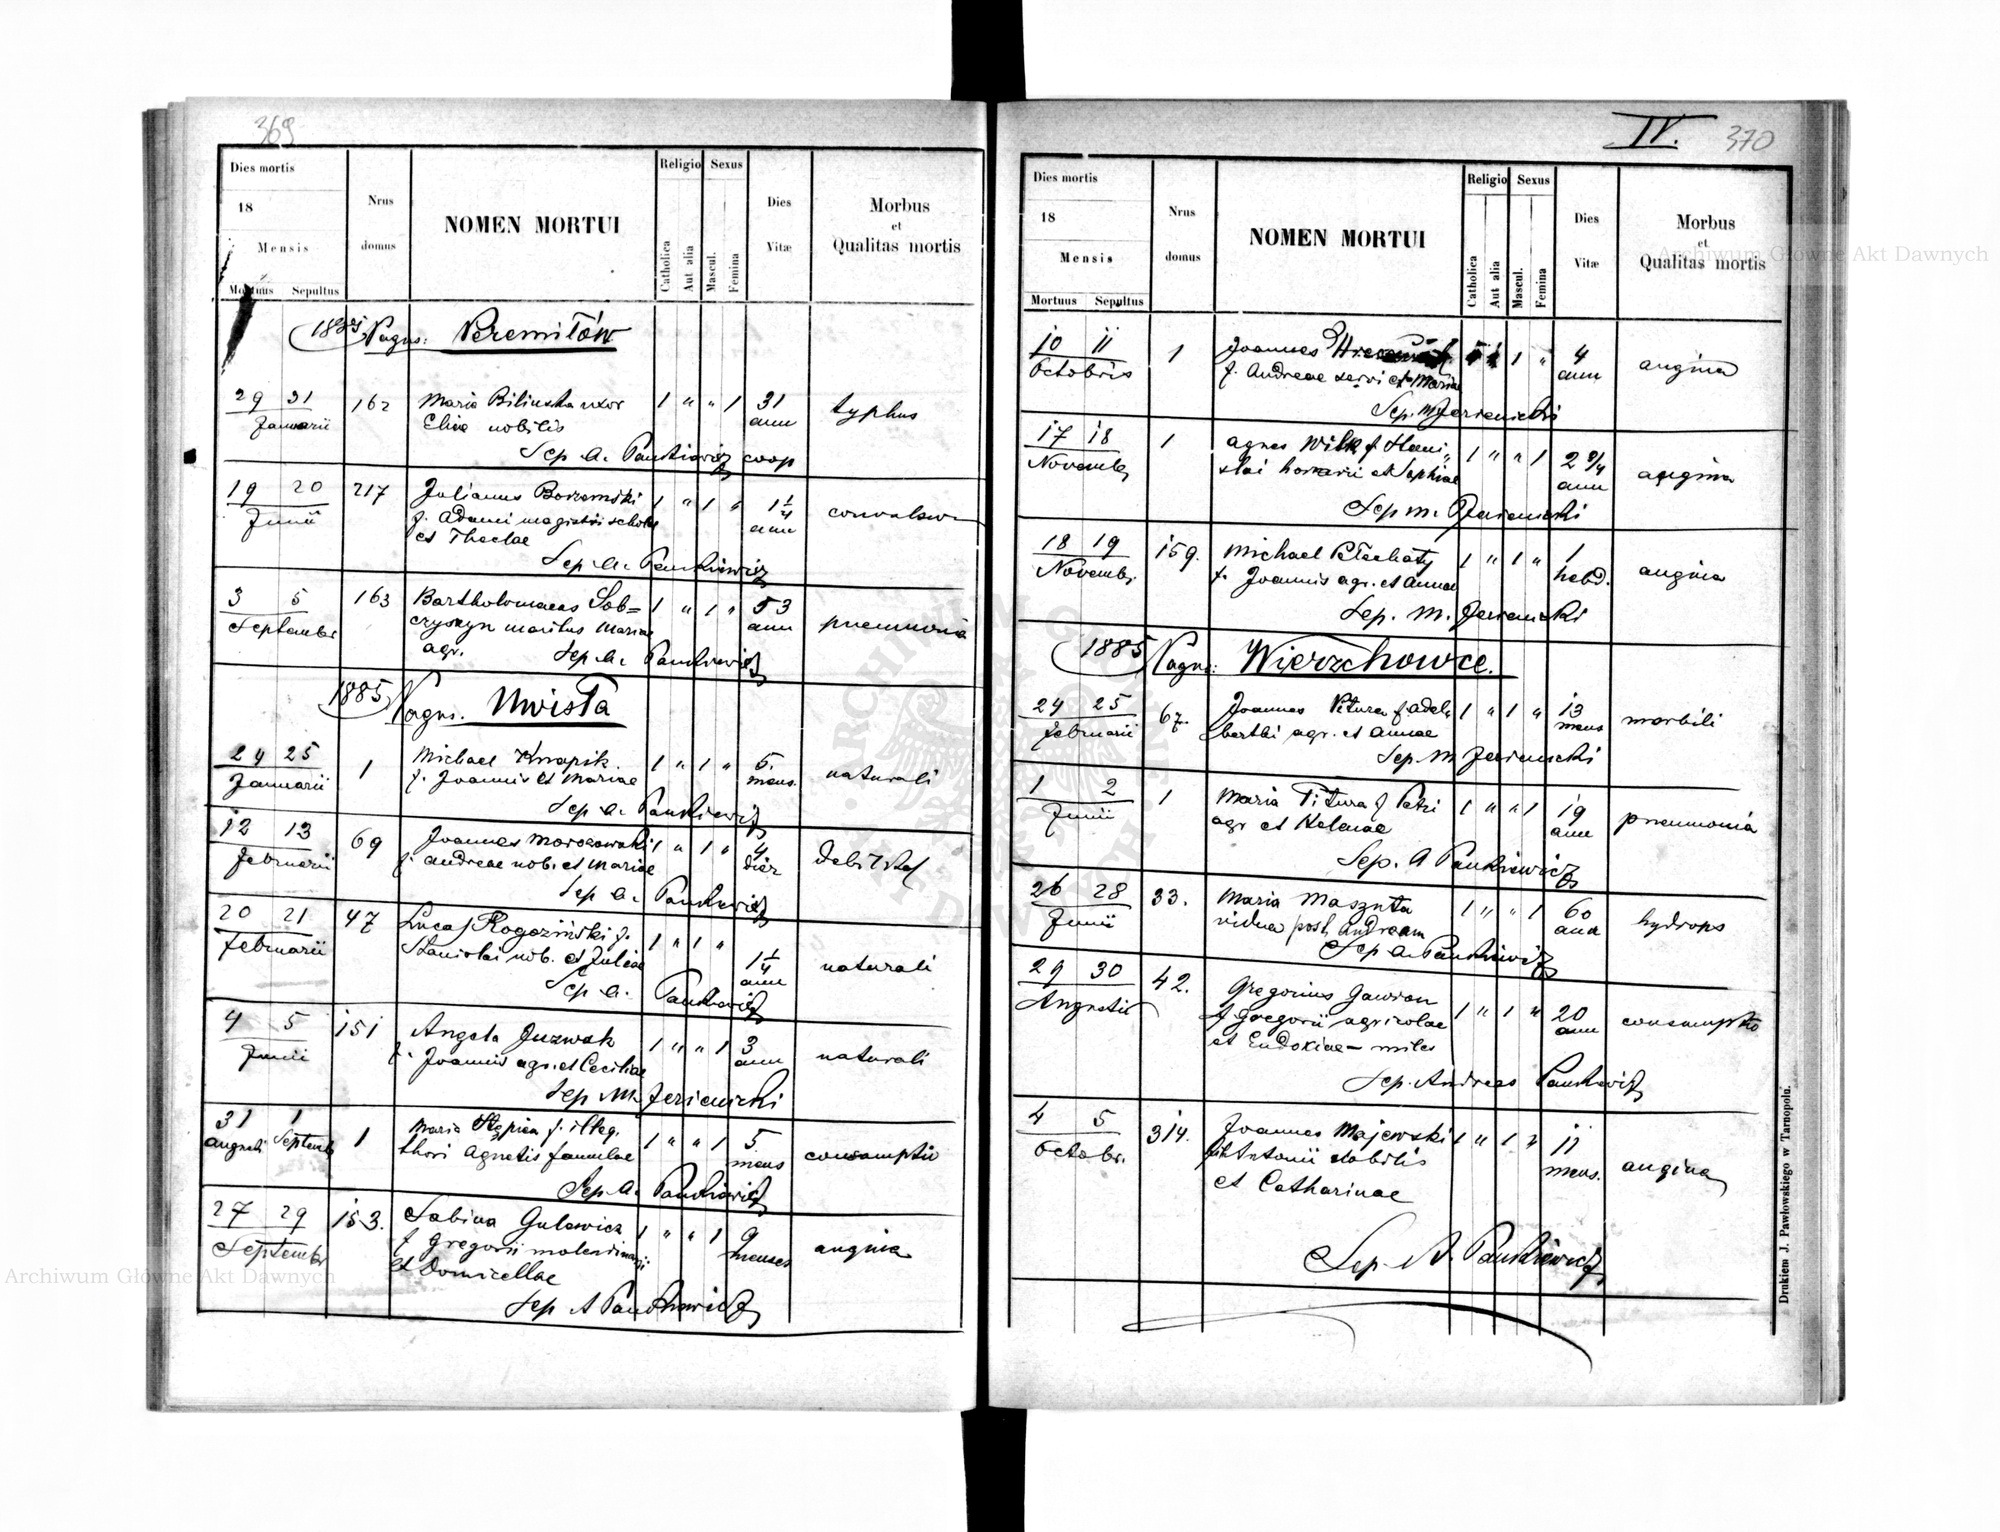 369
Dies mortis
18
Mensis
Mortuus Sepultus
Nrus domus
NOMEN MORTUI
Religio
Catholica
Aut alia
Sexus
Mascul.
Femina
Dies Vitæ
Morbus et Qualitas mortis
1885 Pagus: Peremiłów
29 31 162 Maria Bilinska uxor 1 " " 1 31 typhus
Januarii Eliae nobilis ann
Sep. A. Pankiewicz coop
19 20 217 Julianus Borzemski 1 " 1 " 1 1/4
Junii f. Adami magistri scholae ann
et Theclae
Sep. A. Pankiewicz
3 5 163 Bartholomaeus Sob= 1 " 1 " 53 pneumonia
Septembr maritus Mariae ann
agr. Sep. A. Pankiewicz
1885 Pagus. Uwisła
24 25 1 Michael Knapik 1 " 1 " 5 naturali
Januarii f. Joannis et Mariae mens.
Sep. A. Pankiewicz
12 13 69 Joannes Morozowski 1 " 1 " 4
Februarii f. Andreae nob. et Mariae dies
Sep. A. Pankiewicz
20 21 47 Lucas Rogoziński f. 1 " 1 " 1 1/4 naturali
Februarii Stanislai nob. et Juliae ann
Sep. A. Pankiewicz
4 5 151 Angela Juzwak 1 " " 1 3 naturali
Junii f. Joannis agr. et Ceciliae ann
Sep. M. Jerienicki
31 1 1 Maria Stępien f. illeg. 1 " " 1 5 consumptio
Augusti Septemb thori Agnetis famulae mens
Sep. A. Pankiewicz
27 29 153. Sabina Gulewicz 1 " " 1 9 angina
Septembr f. Gregorii molendinarii menses
et Domicellae
Sep A Pankiewicz
IV. 370
Dies mortis
18
Mensis
Mortuus Sepultus
Nrus domus
NOMEN MORTUI
Religio
Catholica
Aut alia
Sexus
Mascul.
Femina
Dies Vitæ
Morbus et Qualitas mortis
10 11 1 Joannes 1 " 4 angina
Octobris f. Andreae servi et Mariae ann
Sep. M Jerienicki
17 18 1 Agnes Wilk f. Stani„ 1 " " 1 2 3/4 angina
Novemb slai et Sophiae ann
Sep. M. Jerienicki
18 19 159. Michael Płechaty 1 " 1 " 1 angina
Novemb. f. Joannis agr. et Annae hebd.
Sep. M. Jerienicki
1885 Pagus: Wierzchowce.
24 25 67. Joannes Pitura f. Adal„ 1 " 1 " 13 morbili
Februarii berthi agr. et Annae mens
Sep. M Jerienicki
1 2 1 Maria Pitura f Petri 1 " " 1 19 pneumonia
Junii agr et Helenae ann
Sep. A Pankiewicz
26 28 33. Maria Maszuta 1 " " 1 60 hydrops
Junii vidua post Andream ann
Sep A. Pankiewicz
29 30 42. Gregorius Gawron 1 " 1 " 20 consumptio
Augusti f Gregorii agricolae ann
et Eudoxiae — miles
Sep. Andreas Pankiewicz
4 5 314. Joannes Majewski 1 " 1 " 11 angina
Octobr. f. Antonii nobilis mens.
et Catharinae
Sep. A. Pankiewicz
Drukiem J. Pawłowskiego w Tarnopolu.
Archiwum Główne Akt Dawnych
Archiwum Główne Akt Dawnych
ARCHIWUM GŁÓWNE AKT DAWNYCH